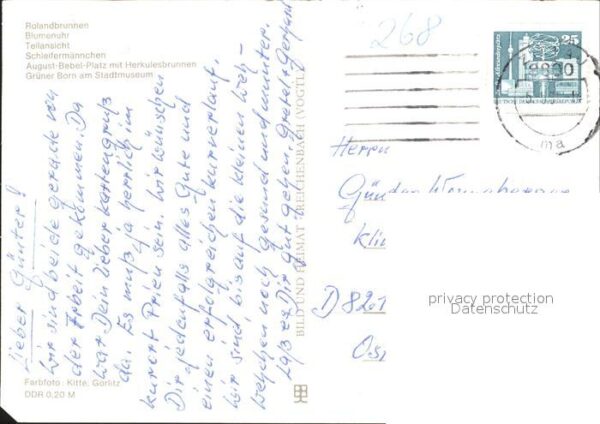 Rolandbrunnen
Blumenuhr
Teilansicht
Schleifermännchen
August-Bebel-Platz mit Herkulesbrunnen
Grüner Born am Stadtmuseum
Lieber Günter!
Wir sind beide gerade von
der Arbeit gekommen. Da
war Dein lieber Kartengruß
da. Es muß ja herrlich im
Kurort Prien sein. Wir wünschen
Dir jedenfalls alles Gute und
einen erfolgreichen Kurverlauf.
Wir sind, bis auf die kleinen Weh-
wehchen noch gesund und munter.
Laß es Dir gut gehen. Gretel + Gerhard
Farbfoto: Kitte, Görlitz
DDR 0,20 M
BILD UND HEIMAT REICHENBACH (VOGTL
268
25
8900
ma
Herrn
Günter
Klin
D 821
privacy protection
Datenschutz